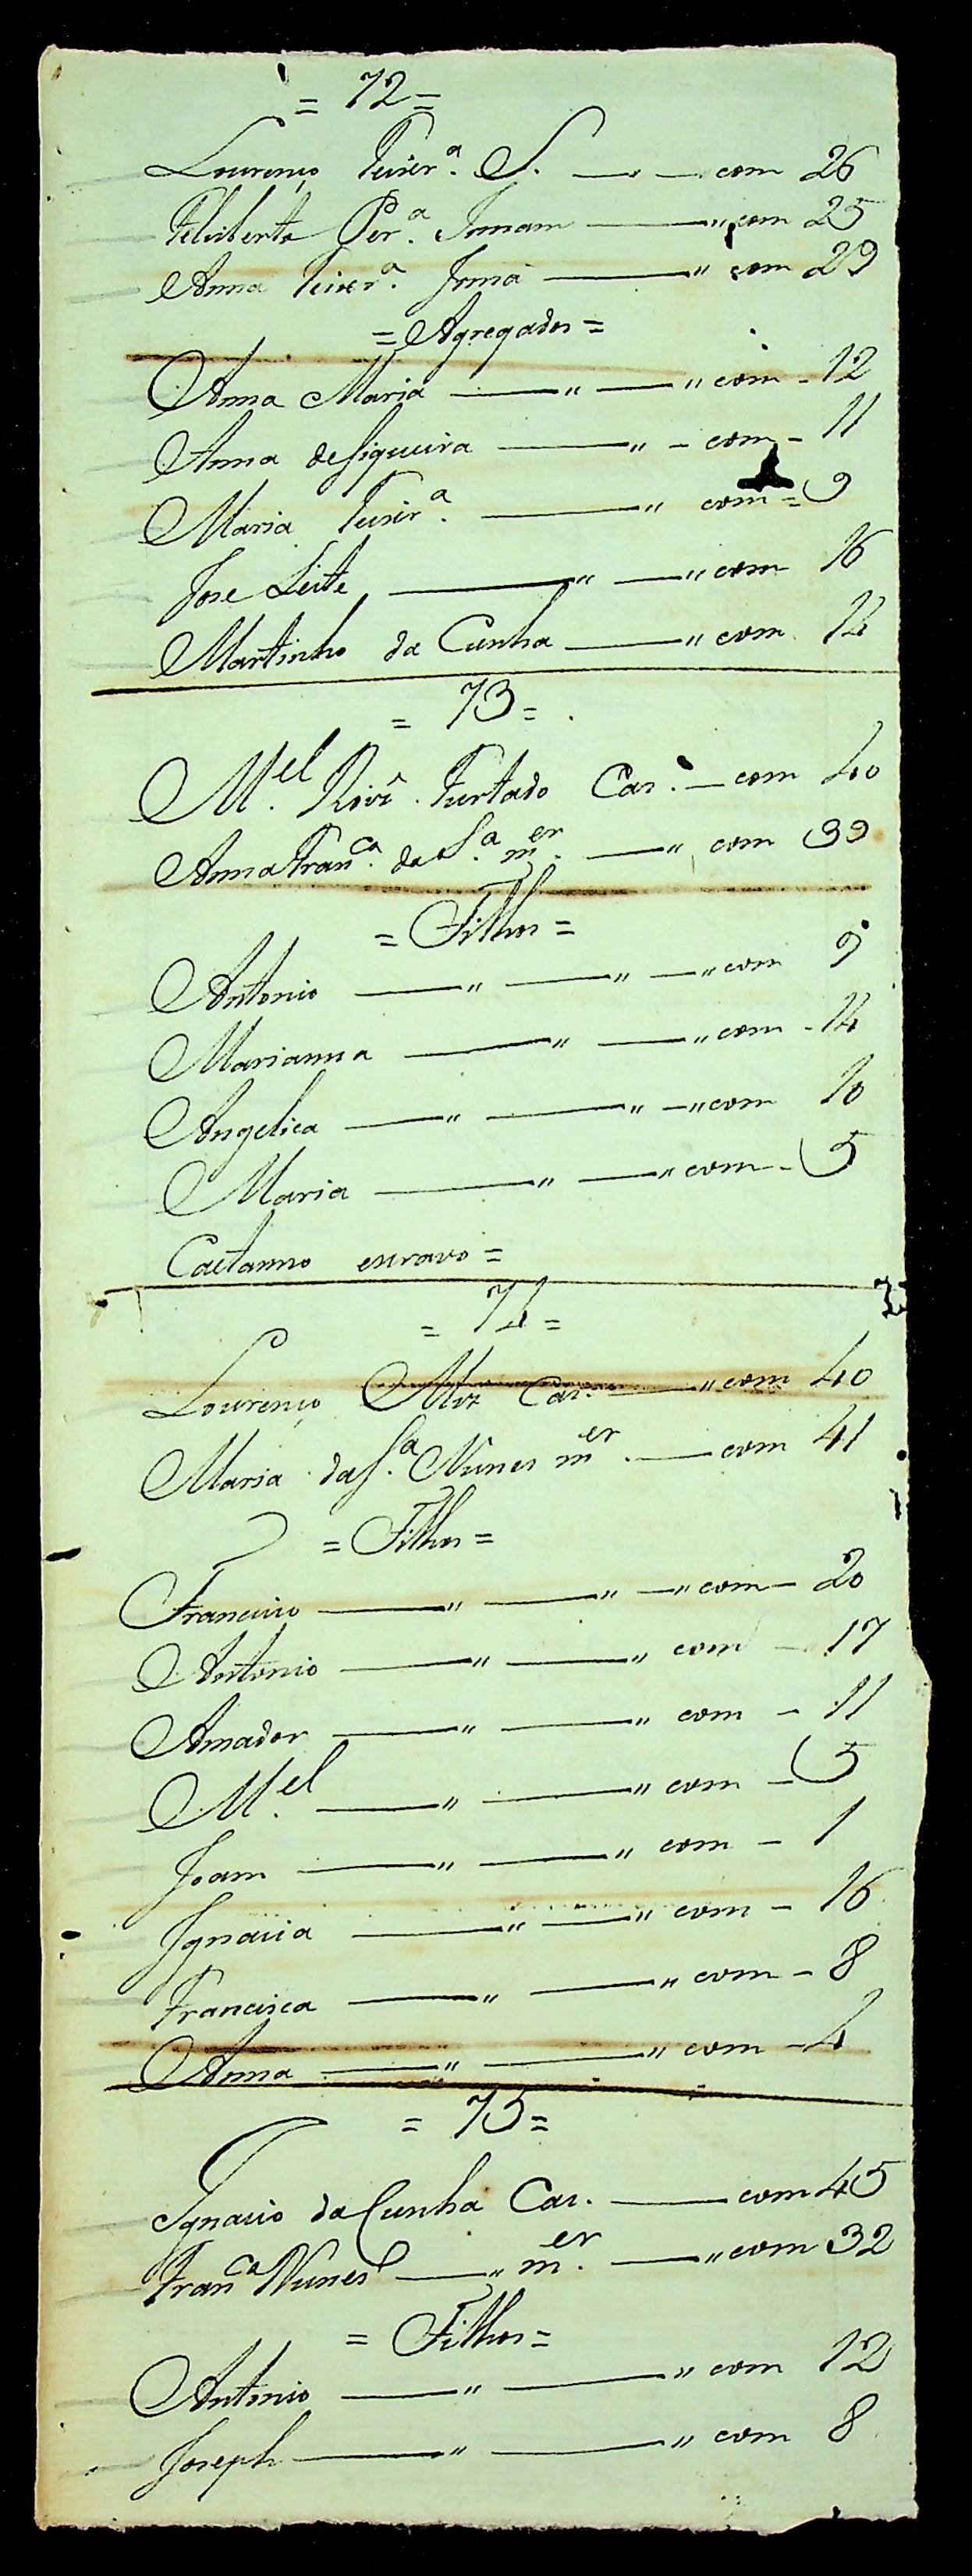 = 72 =
Lourenço Teixr.ª S. — — com 26
Feliberto Per.ª Irmam — " com 25
Anna Teixr.ª Irmã — " com 29
= Agregados =
Anna Maria — " — " com - 12
Anna de Siqueira — " - com - 11
Maria Teixr.ª — " com = 9
Jose Leite — " — " com 16
Martinho da Cunha — " com 14
= 73 =
M.el Roiz Furtado Caz. — com 40
Anna Fran.ca da S.ª m.er — " com 39
= Filhos =
Antonio — " — " — " com 9
Marianna — " — " com - 14
Angelica — " — " — " com 10
Maria — " — " com - 5
Caetanno escravo =
= 74 =
Lourenço Alvz Caz. — " com 40
Maria da S.ª Nunes m.er — com 41
= Filhos =
Francisco — " — " — " com - 20
Antonio — " — " com - 17
Amador — " — " com - 11
M.el — " — " com - 5
Joam — " — " com - 1
Ignacia — " — " com - 16
Francisca — " — " com - 8
Anna — " — " com - 4
= 75 =
Ignacio da Cunha Caz. — com 45
Fran.ca Nunes — " m.er — " com 32
= Filhos =
Antonio — " — " com 12
Joseph — " — " com 8